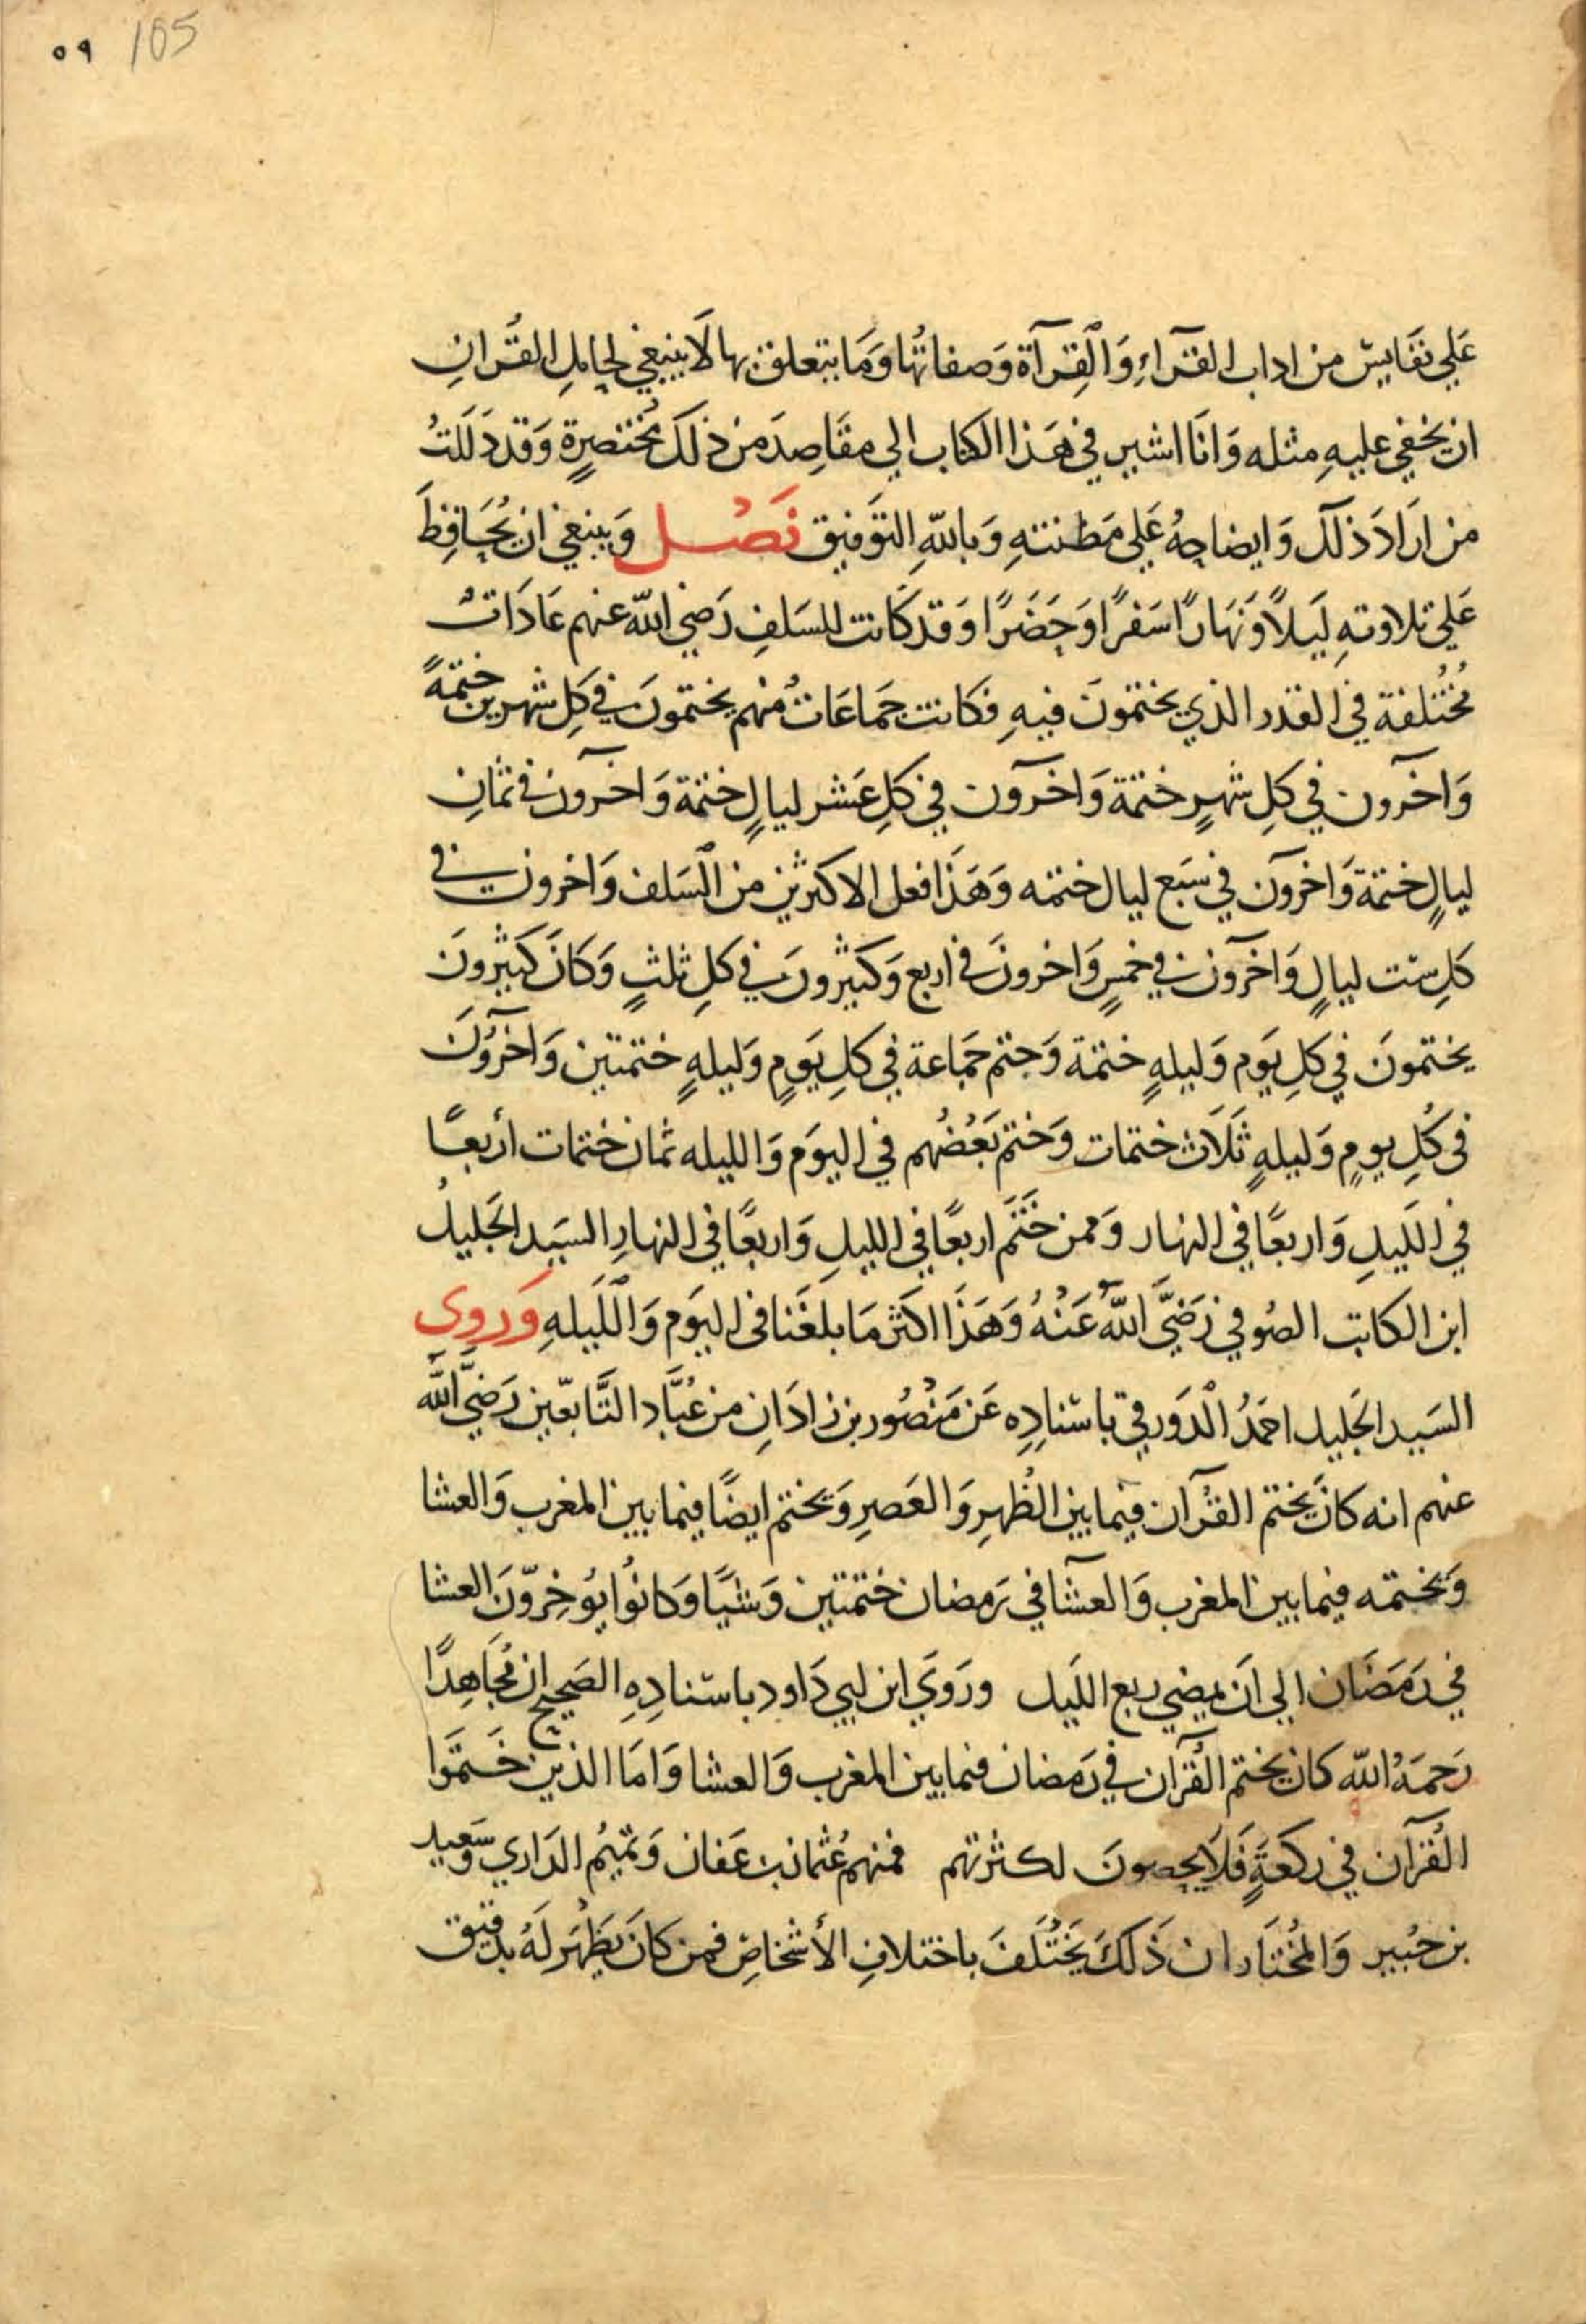 ٥٩ 105
عَلي نفَايسَ من اداب القرآءِ وَالْقِرآة وَصفاتهُا وَمَا يتعلق بها لَا ينبغي لحامِلِ القُرانِ
ان يخفي عليهِ مثله وَانَا اشير في هَذا الكتاب الي مقَاصِدَ من ذلكَ مُختصرةٍ وَقد دَلَلتُ
من ارَادَ ذلكَ وَايضاحِهُ عَلي مَظنتهِ وَباللهِ التوَفيق فَصْل وَينبغي ان يُحَافِظَ
عَلي تلاوتهِ لَيلاً وَنهَارًا سَفرًا وَحَضَرًا وَقد كَانت للسَلفِ رَضي الله عنهم عَادَاتٌ
مُختلفة في القدر الذي يختمونَ فيهِ فكانت جَماعَاتٌ منهم يختمونَ في كلِ شهرين ختمَةً
وَاخرون في كلِ شهرٍ ختمة وَاخرون في كلِ عَشر ليالٍ ختمة وَاخرون في ثمانِ
ليالٍ ختمة وَاخرون في سَبع ليال ختمه وَهَذا فعل الاكثرين من السَلف وَاخرون في
كلِ ست ليالٍ وَاخرون في خمسٍ وَاخرونَ في اربع وَكثيرونَ في كلِ ثلثٍ وَكانَ كثيرونَ
يختمونَ في كلِ يَوم وَليلهٍ ختمة وَختم جَماعة في كلِ يَومٍ وَليلهٍ ختمتين وَاخروُنَ
في كُلِ يومٍ وَليلهٍ ثَلَاث ختمات وَختم بَعْضُهم في اليوَم وَالليله ثمان ختمات أربعًا
في اللَيلِ وَاربعًا في النهار وَممن خَتَمَ اربعًا في الليلِ وَاربعًا في النهارِ السَيد الجَليلُ
ابن الكاتب الصُوفي رَضَيَّ اللَّهُ عَنْهُ وَهَذَا اكثر مَا بلغَنا في اليوَم وَالْلَيلهِ وَروي
السَيد الجَليل احمَدُ الْدَورقي باسْنادِهِ عَن مَنْصُور بن زادَانِ من عُبَّاد التَّابعّين رَضيَّ اللَّه
عنهم انه كانَ يختم القُرآن فيما بين الظُهرِ وَالعَصرِ وَيختم ايضًا فيما بين المغرب وَالعشا
وَيختمه فيما بين المغرب وَالعشآ في رَمضان ختمتين وَشيًا وَكانوُا يؤخِرّونَ العشا
في رَمَضَان الي انَ يمضي ربع اللَيل ورَوَيَ ابن ابي دَاود باسْنادِهِ الصَحيح ان مُجاهِدًا
رَحمَهُ الله كان يختم القُرآن في رَمضان فيما بين المغرب وَالعشا وَامَا الذين خَتمَوا
القُرآن في ركعَةٍ فَلَا يحصونَ لكثرتهم فمنهم عُثمان بن عَفان وَتميمُ الدَاري وَسَعيد
بن جُبير وَالمُختَار ان ذَلكَ يَختَلَفَ باختلافِ الأشخاصِ فمن كانَ يَظهَر لَهُ بدَقيق